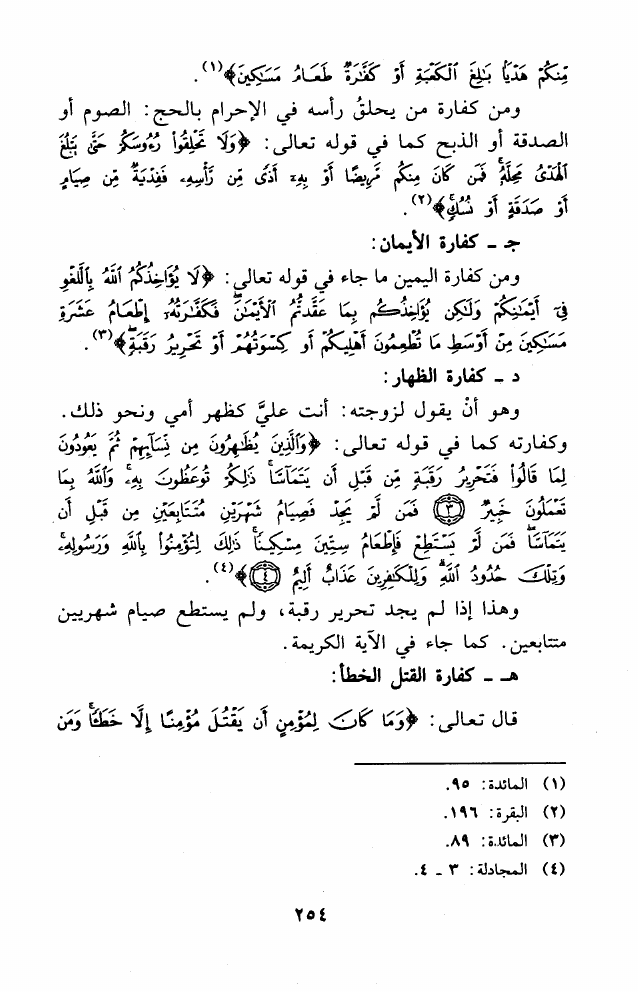 مِّنكُمْ هَدْيًا بَـٰلِغَ ٱلْكَعْبَةِ أَوْ كَفَّـٰرَةٌ طَعَامُ مَسَـٰكِينَ﴾(١).
ومن كفارة من يحلقُ رأسه في الإحرام بالحج: الصوم أو
الصدقة أو الذبح كما في قوله تعالى: ﴿وَلَا تَحْلِقُوا۟ رُءُوسَكُمْ حَتَّىٰ يَبْلُغَ
ٱلْهَدْىُ مَحِلَّهُۥ ۚ فَمَن كَانَ مِنكُم مَّرِيضًا أَوْ بِهِۦٓ أَذًى مِّن رَّأْسِهِۦ فَفِدْيَةٌ مِّن صِيَامٍ
أَوْ صَدَقَةٍ أَوْ نُسُكٍ﴾(٢).
جـ ـ كفارة الأيمان:
ومن كفارة اليمين ما جاء في قوله تعالى: ﴿لَا يُؤَاخِذُكُمُ ٱللَّهُ بِٱللَّغْوِ
فِىٓ أَيْمَـٰنِكُمْ وَلَـٰكِن يُؤَاخِذُكُم بِمَا عَقَّدتُّمُ ٱلْأَيْمَـٰنَ ۖ فَكَفَّـٰرَتُهُۥٓ إِطْعَامُ عَشَرَةِ
مَسَـٰكِينَ مِنْ أَوْسَطِ مَا تُطْعِمُونَ أَهْلِيكُمْ أَوْ كِسْوَتُهُمْ أَوْ تَحْرِيرُ رَقَبَةٍ ۖ﴾(٣).
د ـ كفارة الظهار:
وهو أنْ يقول لزوجته: أنت عليَّ كظهر أمي ونحو ذلك.
وكفارته كما في قوله تعالى: ﴿وَٱلَّذِينَ يُظَـٰهِرُونَ مِن نِّسَآئِهِمْ ثُمَّ يَعُودُونَ
لِمَا قَالُوا۟ فَتَحْرِيرُ رَقَبَةٍ مِّن قَبْلِ أَن يَتَمَآسَّا ۚ ذَٰلِكُمْ تُوعَظُونَ بِهِۦ ۚ وَٱللَّهُ بِمَا
تَعْمَلُونَ خَبِيرٌ ٣ فَمَن لَّمْ يَجِدْ فَصِيَامُ شَهْرَيْنِ مُتَتَابِعَيْنِ مِن قَبْلِ أَن
يَتَمَآسَّا ۖ فَمَن لَّمْ يَسْتَطِعْ فَإِطْعَامُ سِتِّينَ مِسْكِينًا ۚ ذَٰلِكَ لِتُؤْمِنُوا۟ بِٱللَّهِ وَرَسُولِهِۦ ۚ
وَتِلْكَ حُدُودُ ٱللَّهِ ۗ وَلِلْكَـٰفِرِينَ عَذَابٌ أَلِيمٌ ٤﴾(٤).
وهذا إذا لم يجد تحرير رقبة، ولم يستطع صيام شهريين
متتابعين. كما جاء في الآية الكريمة.
هـ ـ كفارة القتل الخطأ:
قال تعالى: ﴿وَمَا كَانَ لِمُؤْمِنٍ أَن يَقْتُلَ مُؤْمِنًا إِلَّا خَطَـًٔا ۚ وَمَن
(١) المائدة: ٩٥.
(٢) البقرة: ١٩٦.
(٣) المائدة: ٨٩.
(٤) المجادلة: ٣ ـ ٤.
٢٥٤